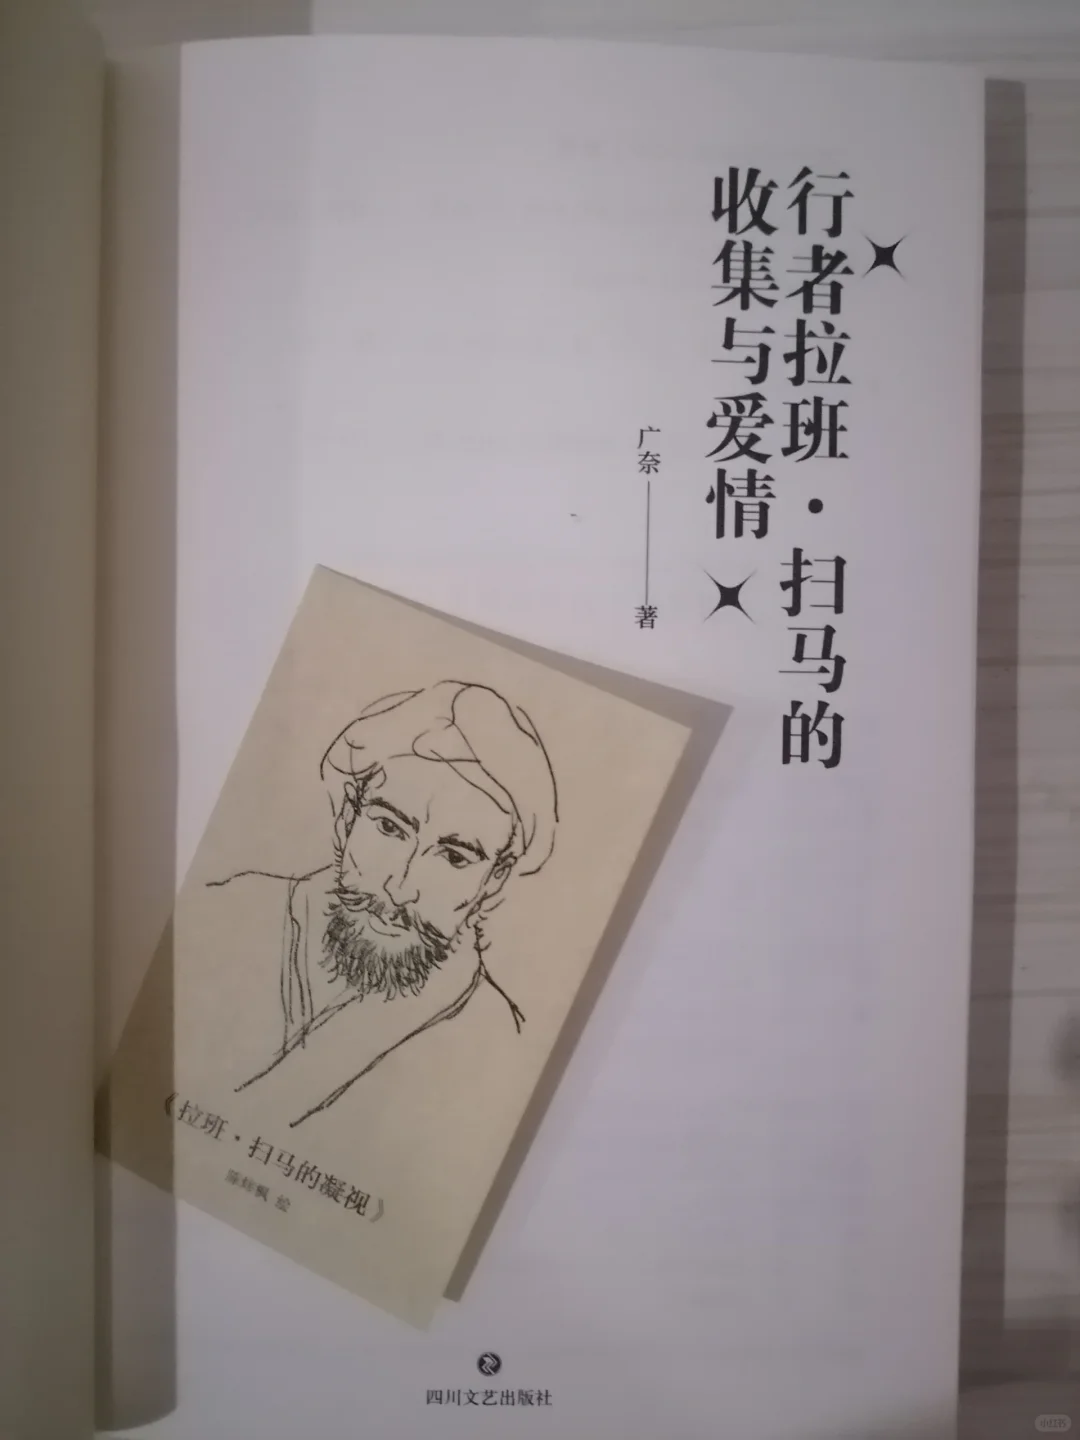 行者拉班·扫马的
收集与爱情
广奈——著
《拉班·扫马的凝视》
绘
四川文艺出版社
小红书